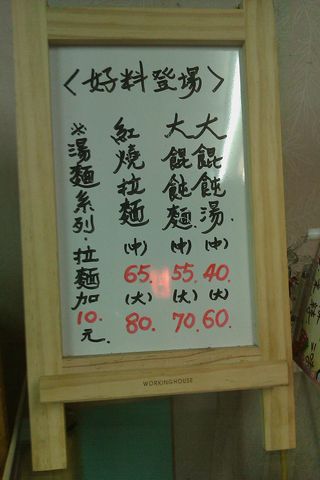 〈好料登場〉
大餛飩湯.(中)40.(大)60.
大餛飩麵.(中)55.(大)70.
紅燒拉麵(中)65.(大)80.
※湯麵系列.拉麵加10.元.
WORKINGHOUSE